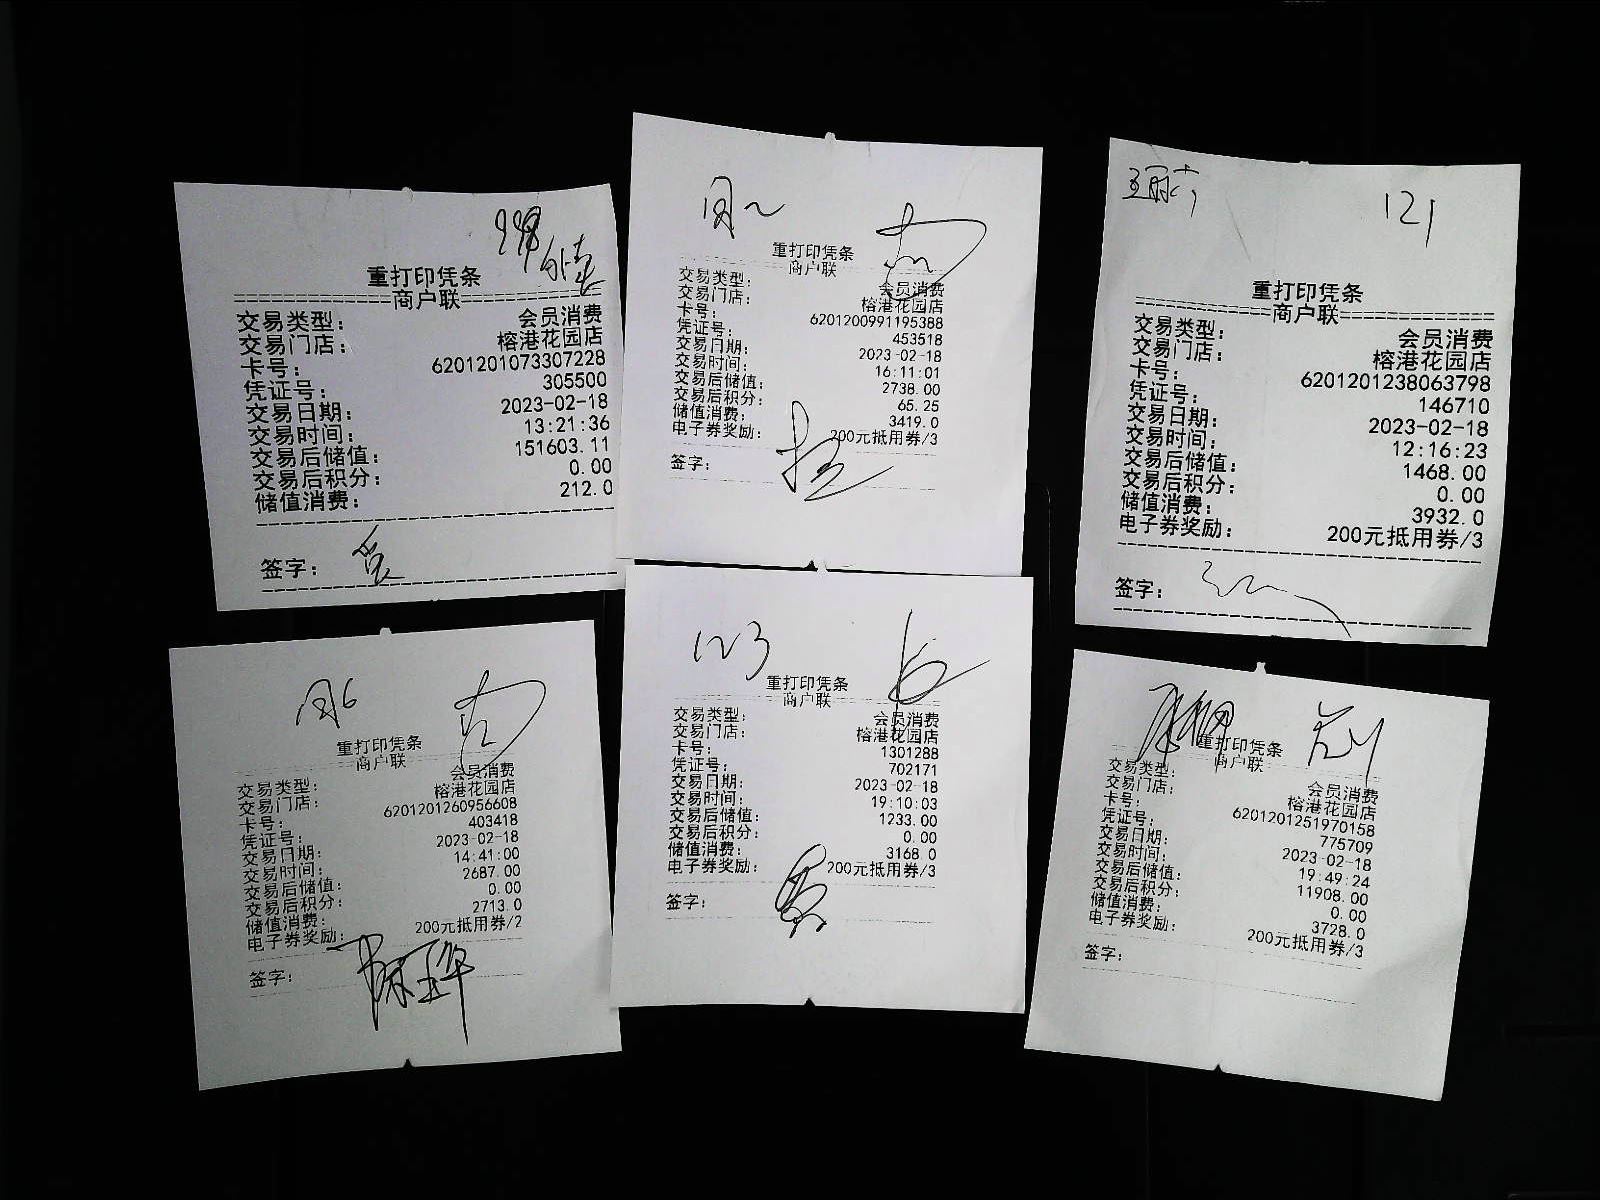 重打印凭条
商户联
交易类型: 会员消费
交易门店: 榕港花园店
卡号: 6201201073307228
凭证号: 305500
交易日期: 2023-02-18
交易时间: 13:21:36
交易后储值: 151603.11
交易后积分: 0.00
储值消费: 212.0
签字:
重打印凭条
商户联
交易类型: 会员消费
交易门店: 榕港花园店
卡号: 6201200991195388
凭证号: 453518
交易日期: 2023-02-18
交易时间: 16:11:01
交易后储值: 2738.00
交易后积分: 65.25
储值消费: 3419.0
电子券奖励: 200元抵用券/3
签字:
121
重打印凭条
商户联
交易类型: 会员消费
交易门店: 榕港花园店
卡号: 6201201238063798
凭证号: 146710
交易日期: 2023-02-18
交易时间: 12:16:23
交易后储值: 1468.00
交易后积分: 0.00
储值消费: 3932.0
电子券奖励: 200元抵用券/3
签字:
重打印凭条
商户联
交易类型: 会员消费
交易门店: 榕港花园店
卡号: 6201201260956608
凭证号: 403418
交易日期: 2023-02-18
交易时间: 14:41:00
交易后储值: 2687.00
交易后积分: 0.00
储值消费: 2713.0
电子券奖励: 200元抵用券/2
签字:
123
重打印凭条
商户联
交易类型: 会员消费
交易门店: 榕港花园店
卡号: 1301288
凭证号: 702171
交易日期: 2023-02-18
交易时间: 19:10:03
交易后储值: 1233.00
交易后积分: 0.00
储值消费: 3168.0
电子券奖励: 200元抵用券/3
签字:
重打印凭条
商户联
交易类型: 会员消费
交易门店: 榕港花园店
卡号: 6201201251970158
凭证号: 775709
交易日期: 2023-02-18
交易时间: 19:49:24
交易后储值: 11908.00
交易后积分: 0.00
储值消费: 3728.0
电子券奖励: 200元抵用券/3
签字: